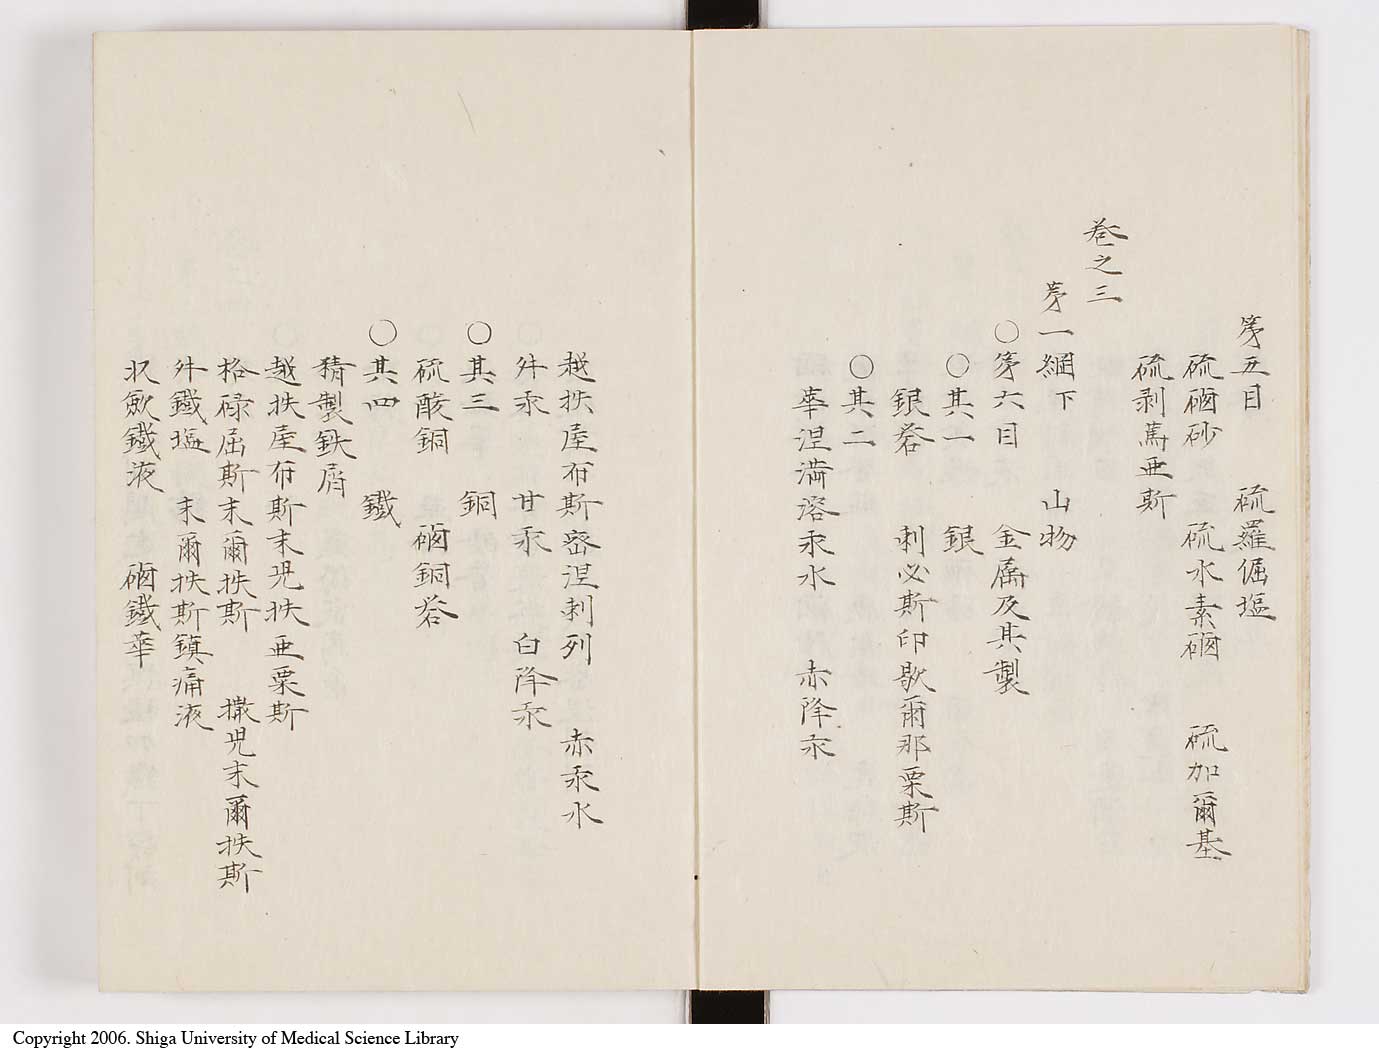 第五目　硫羅倔塩
硫硇砂　硫水素硇　硫加爾基
硫剥篤亜斯
巻之三
第一綱下　山物
○第六目　金属及其製
○其一　銀
銀䒷　刺必斯印歇爾那栗斯
○其二
華涅満溶汞水　赤降汞
越抶屋布斯密涅刺列　赤汞水
外汞　甘汞　白降汞
○其三　銅
硫酸銅　硇銅䒷
○其四　鐵
精製鉄屑
越抶屋布斯末児抶亜栗斯
格碌屈斯末爾抶斯　撒児末爾抶斯
外鐵塩　末爾抶斯鎮痛液
鐵液　硇鐵華
Copyright 2006. Shiga University of Medical Science Library